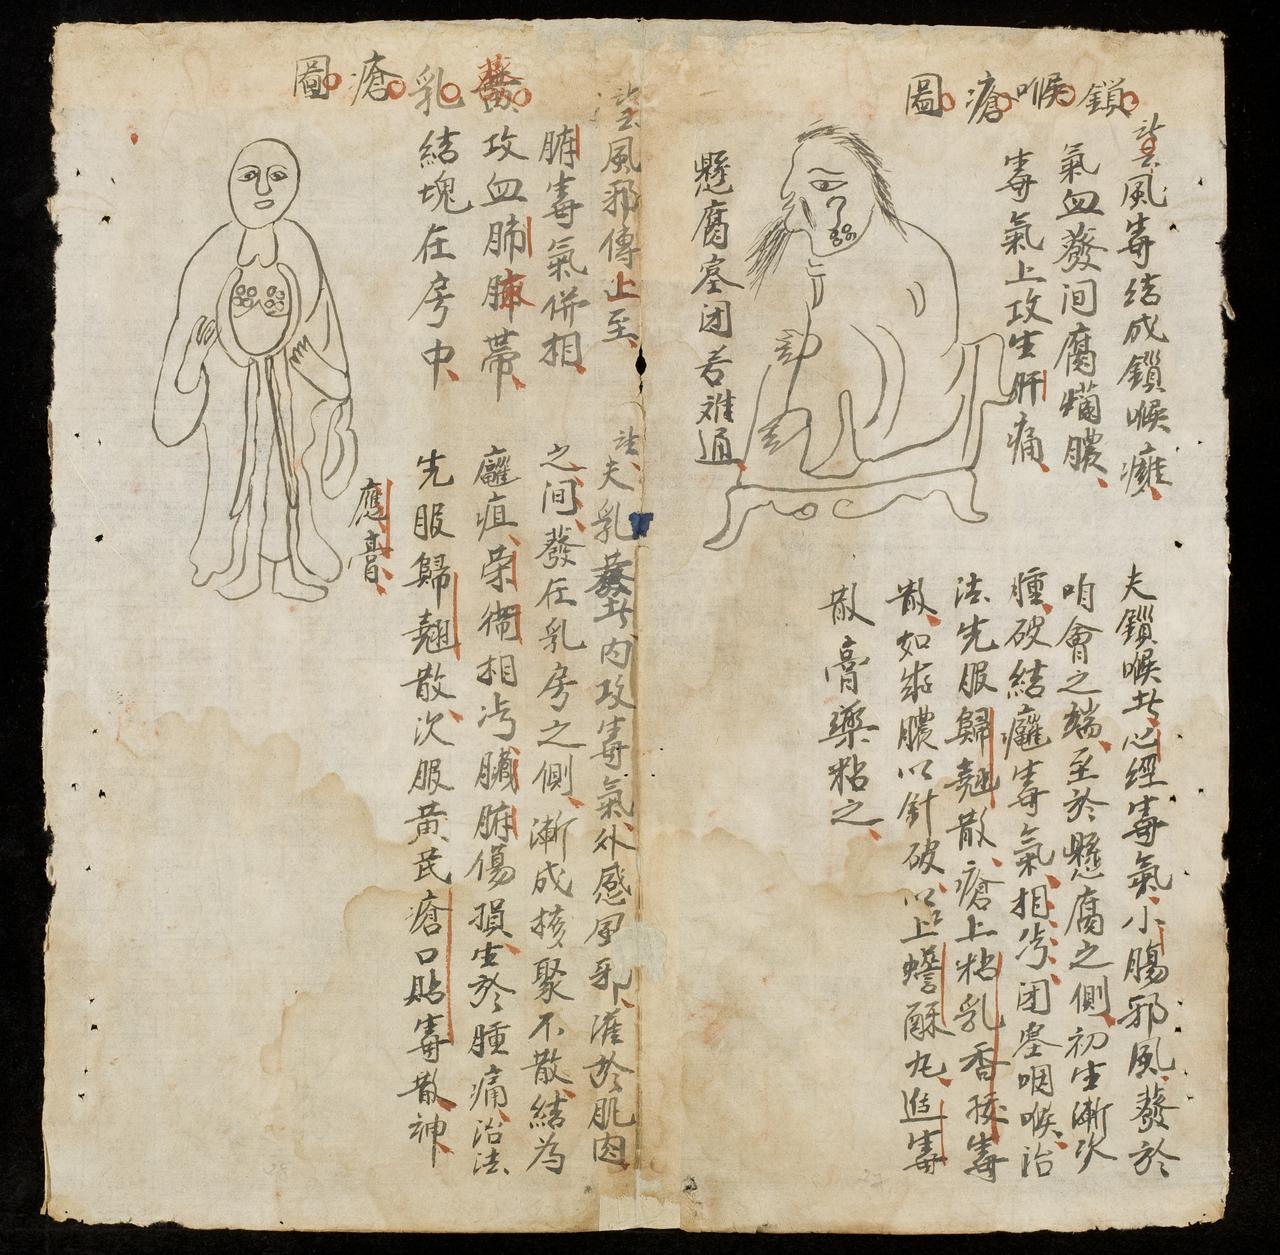 鎖喉瘡圖
訣云風毒結成鎖喉癰
氣血發间腐爛膿
毒氣上攻生肝痛
懸腐塞闭若难通
夫鎖喉者心經毒氣小腸邪風發於
咱會之端至於懸腐之側初生漸次
腫破結癰毒氣相攻闭塞咽喉治
法先服歸翹散瘡上粘乳香拔毒
散如若膿以針破以上蟾酥丸追毒
散膏藥粘之
發乳瘡圖
訣云風邪傳上至
腑毒氣併相
攻血肺腑帶
結塊在房中
訣夫乳發者內攻毒氣外感風邪灌於肌肉
之间發在乳房之側漸成核聚不散結為
癰疽荣衛相攻臟腑傷損生於腫痛治法
先服歸翹散次服黃芪瘡口貼毒散神
應膏